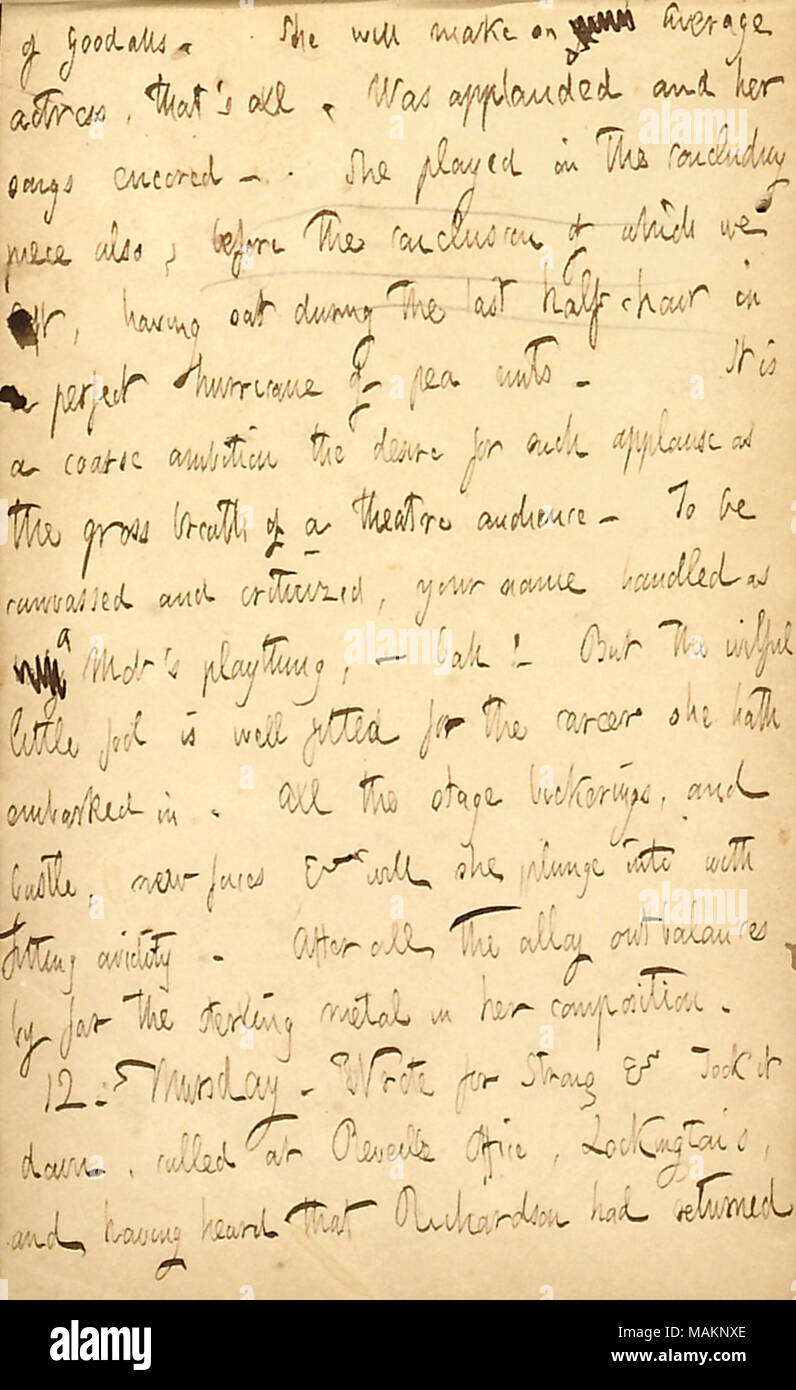 of Goodalls. She will make an average
actress, that's all. Was applauded and her
songs encored. She played in the concluding
piece also, before the conclusion of which we
left, having sat during the last half-hour in
a perfect hurricane of pea nuts. It is
a coarse ambition the desire for such applause as
the gross breath of a theatre audience. To be
canvassed and criticized, your name bandied as
a Mob's plaything, - bah! But the wilful
little fool is well fitted for the career she hath
embarked in. All the stage bickerings, and
bustle, new faces &c will she plunge into with
fitting avidity. After all, the alloy outbalances
by far the sterling metal in her composition.
12. Thursday. Wrote for Strong &c Took it
down, called at Reveille Office, Lockington's,
and having heard that Richardson had returned
alamy
Image ID: MAKNXE
www.alamy.com